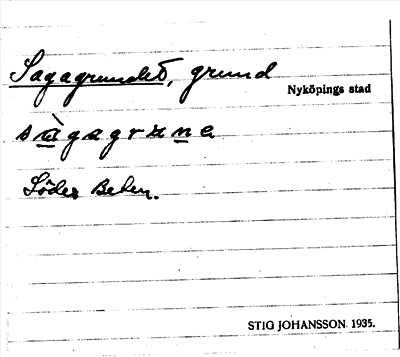 Sagagrundet, grund
Nyköpings stad
sàgagrune
Söder
STIG JOHANSSON 1935.